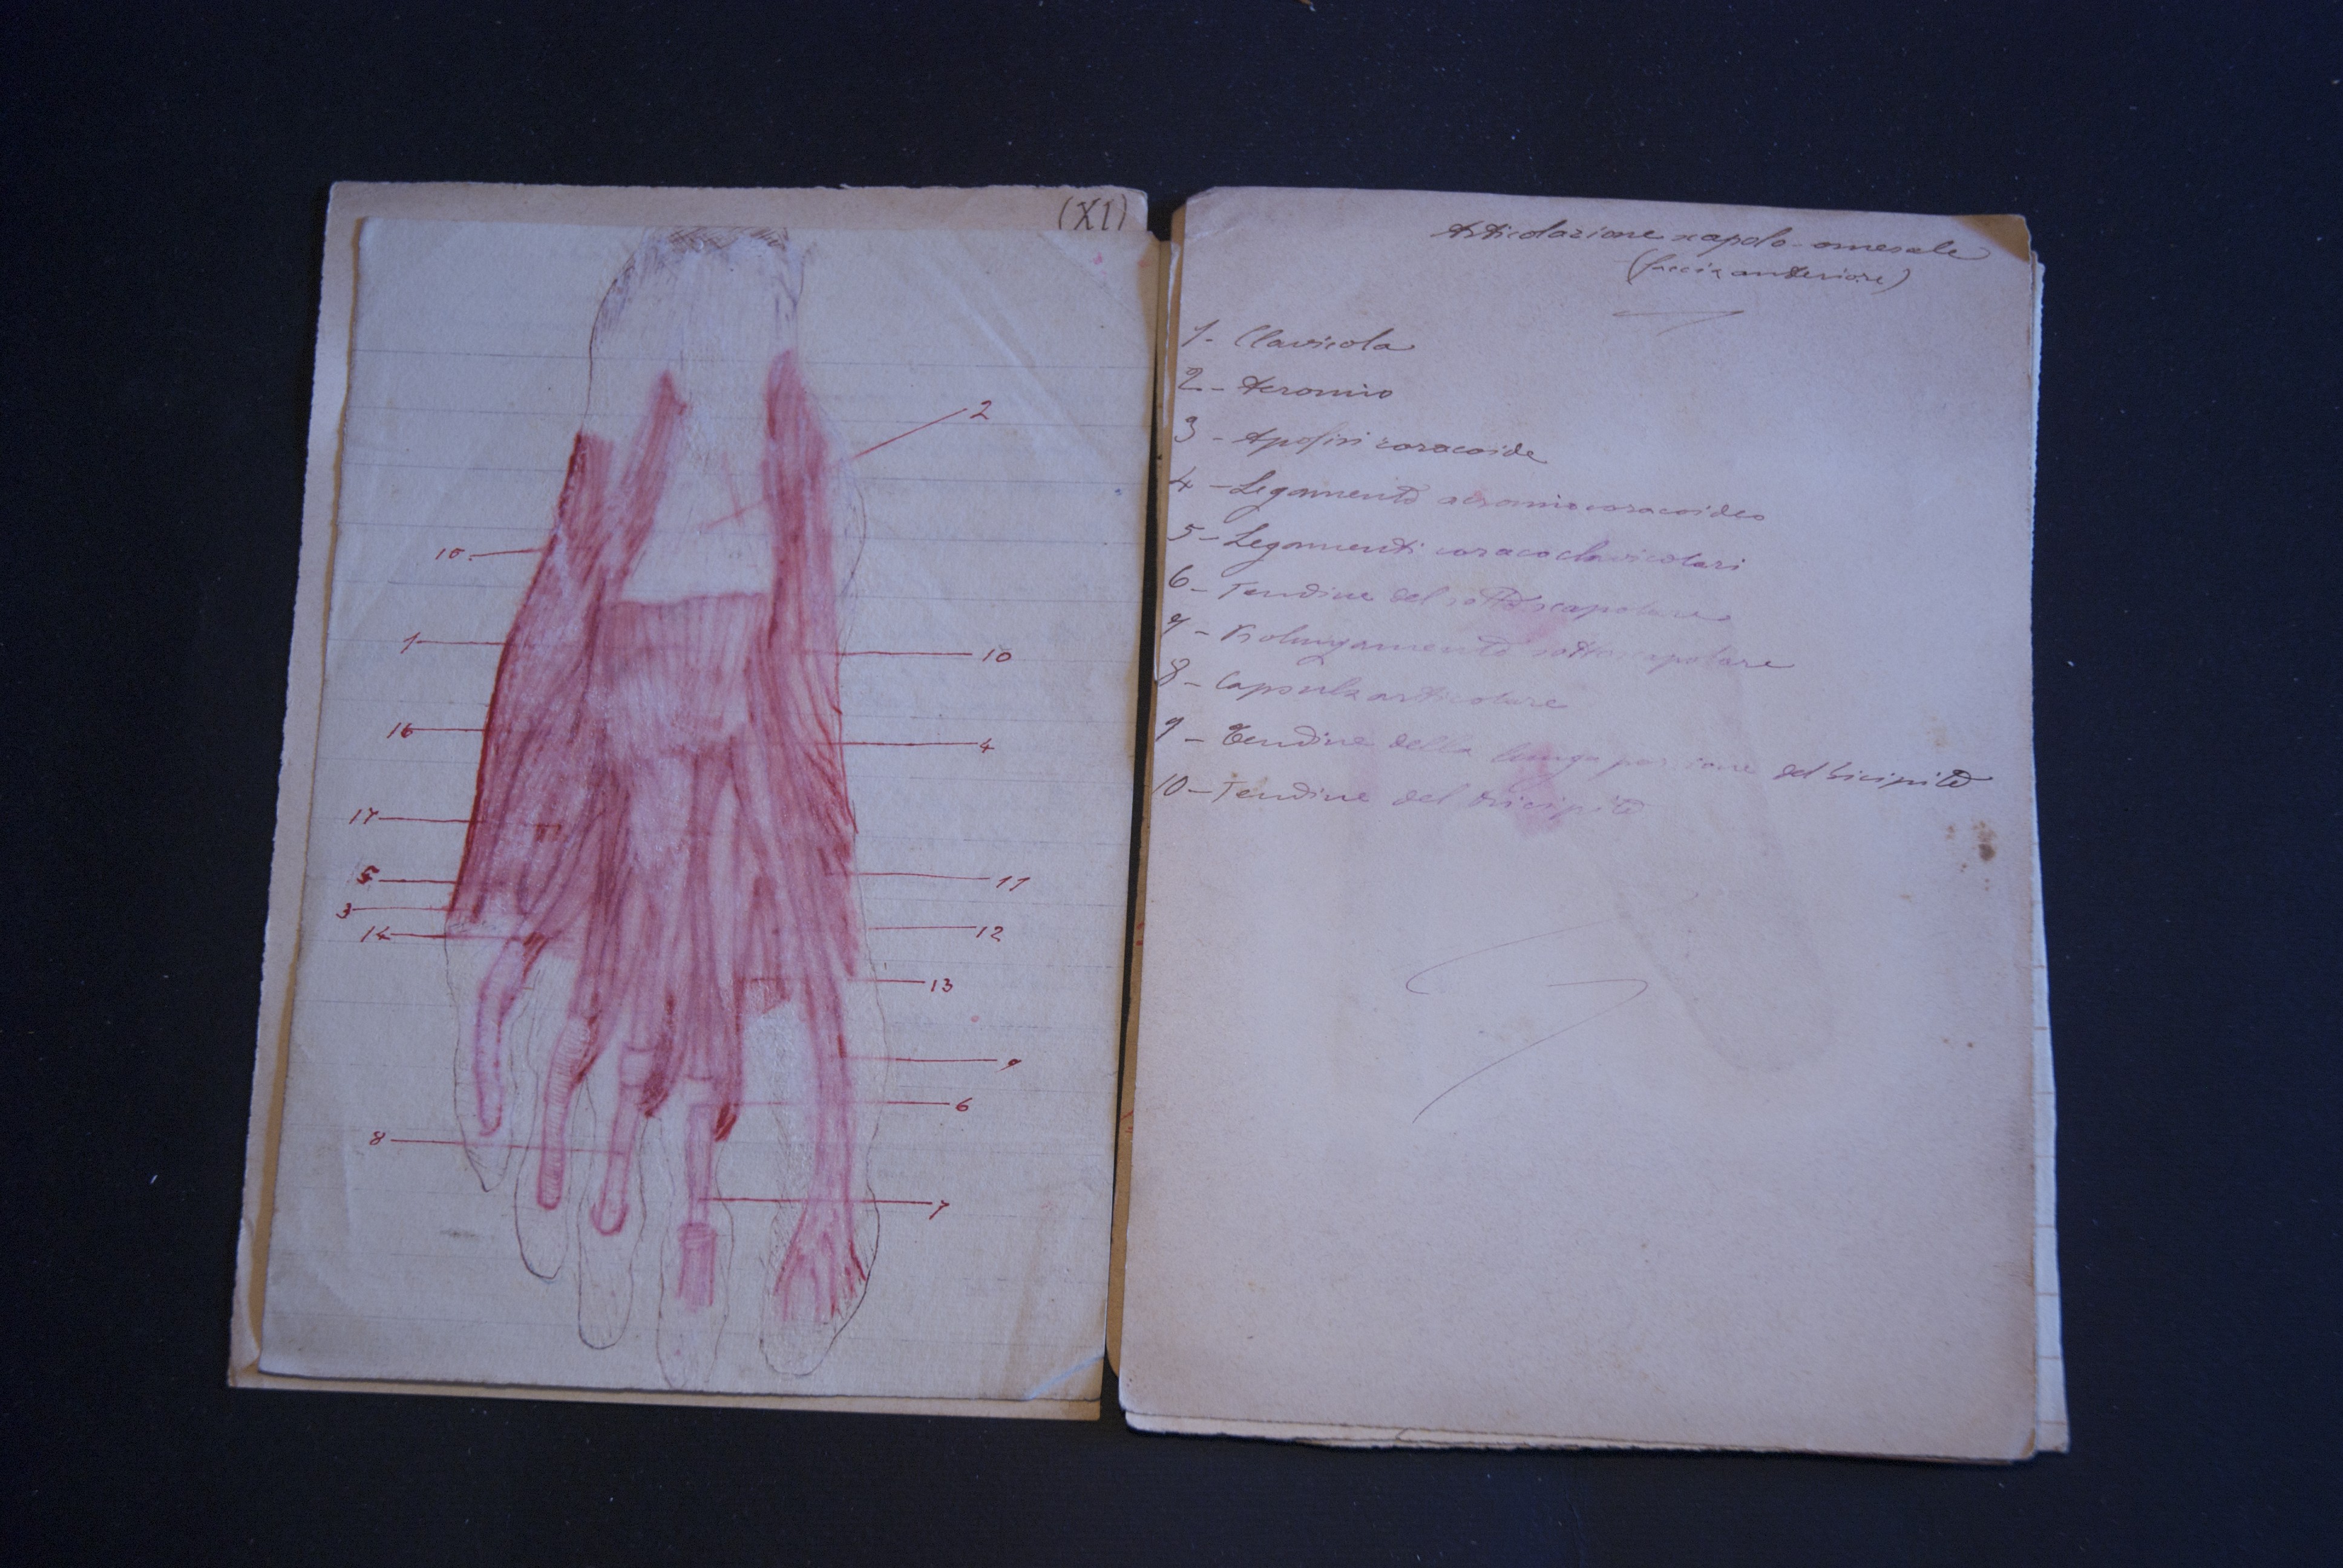 (XI)
2
10
1
10
16
4
17
5
11
3
14
12
13
9
6
8
7
Articolazione scapolo-omerale
(faccia anteriore)
1- Clavicola
2- Acromio
3- Apofisi coracoide
4- Legamento acromiocoracoideo
5- Legamenti coracoclavicolari
6- Tendine del sottoscapolare
7- Prolungamento sottoscapolare
8- Capsula articolare
9- Tendine della lunga porzione del bicipite
10- Tendine del tricipite